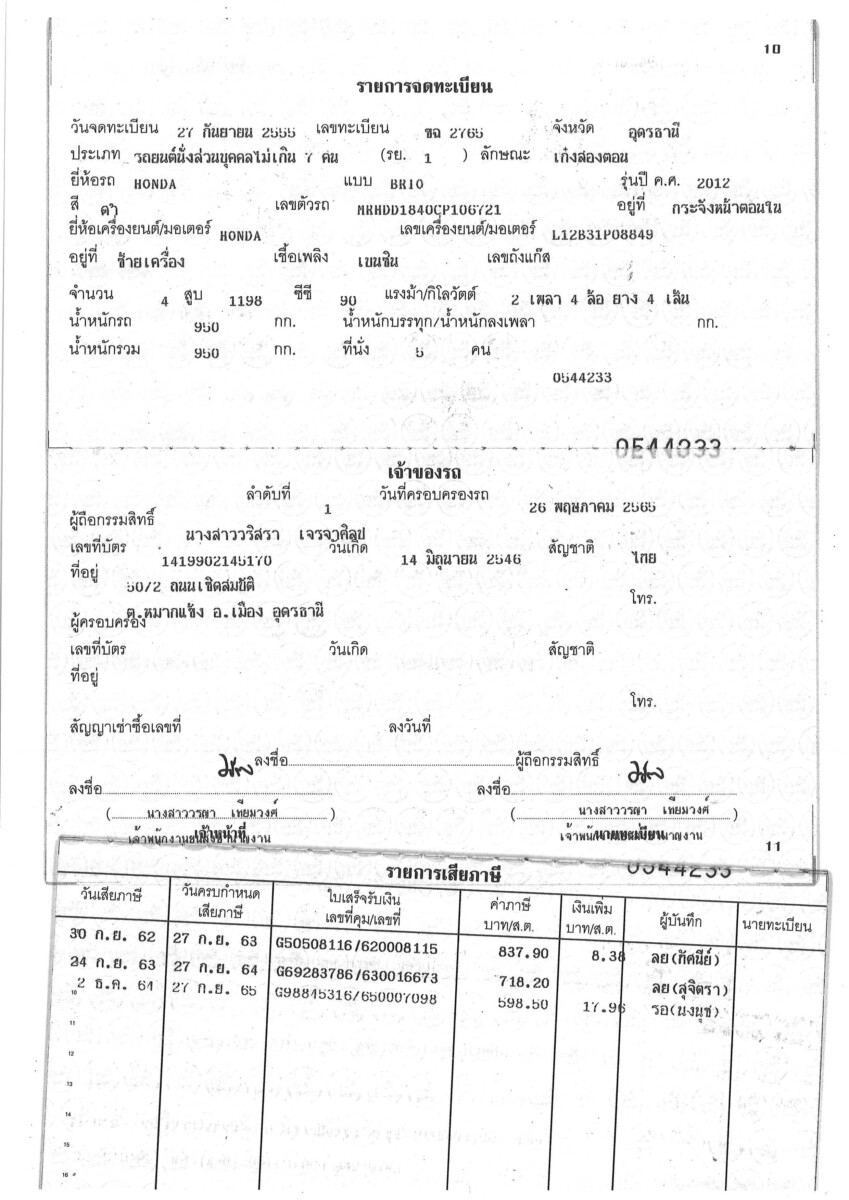 10
รายการจดทะเบียน
วันจดทะเบียน 27 กันยายน 2555 เลขทะเบียน ขฉ 2765 จังหวัด อุดรธานี
ประเภท รถยนต์นั่งส่วนบุคคลไม่เกิน 7 คน (รย. 1 ) ลักษณะ เก๋งสองตอน
ยี่ห้อรถ HONDA แบบ BRIO รุ่นปี ค.ศ. 2012
สี ดำ เลขตัวรถ MRHDD1840CP106721 อยู่ที่ กระจังหน้าตอนใน
ยี่ห้อเครื่องยนต์/มอเตอร์ HONDA เลขเครื่องยนต์/มอเตอร์ L12B31P08849
อยู่ที่ ซ้ายเครื่อง เชื้อเพลิง เบนซิน เลขถังแก๊ส
จำนวน 4 สูบ 1198 ซีซี 90 แรงม้า/กิโลวัตต์ 2 เพลา 4 ล้อ ยาง 4 เส้น
น้ำหนักรถ 950 กก. น้ำหนักบรรทุก/น้ำหนักลงเพลา กก.
น้ำหนักรวม 950 กก. ที่นั่ง 5 คน
0544233
0544233
เจ้าของรถ
ลำดับที่ 1 วันที่ครอบครองรถ 26 พฤษภาคม 2565
ผู้ถือกรรมสิทธิ์ นางสาววริสรา เจรจาศิลป
เลขที่บัตร 1419902145170 วันเกิด 14 มิถุนายน 2546 สัญชาติ ไทย
ที่อยู่ 50/2 ถนนเชิดสมชัติ
โทร.
ต.หมากแข้ง อ.เมือง อุดรธานี
ผู้ครอบครอง
เลขที่บัตร วันเกิด สัญชาติ
ที่อยู่
โทร.
สัญญาเช่าซื้อเลขที่ ลงวันที่
ลงชื่อ ผู้ถือกรรมสิทธิ์
ลงชื่อ ลงชื่อ
( นางสาววรญา เทียมวงศ์ ) ( นางสาววรญา เทียมวงศ์ )
เจ้าหน้าที่ นายทะเบียน
11
0544233
รายการเสียภาษี
วันเสียภาษี วันครบกำหนด เสียภาษี ใบเสร็จรับเงิน เลขที่คุม/เลขที่ ค่าภาษี บาท/ส.ต. เงินเพิ่ม บาท/ส.ต. ผู้บันทึก นายทะเบียน
30 ก.ย. 62 27 ก.ย. 63 G50508116/620008115 837.90 8.38 ลย(กัศนีย์)
24 ก.ย. 63 27 ก.ย. 64 G69283786/630016673 718.20 ลย(สุจิตรา)
2 ธ.ค. 64 27 ก.ย. 65 G98845316/650007098 598.50 17.96 รอ(นงนุช)
10
11
12
13
14
15
16